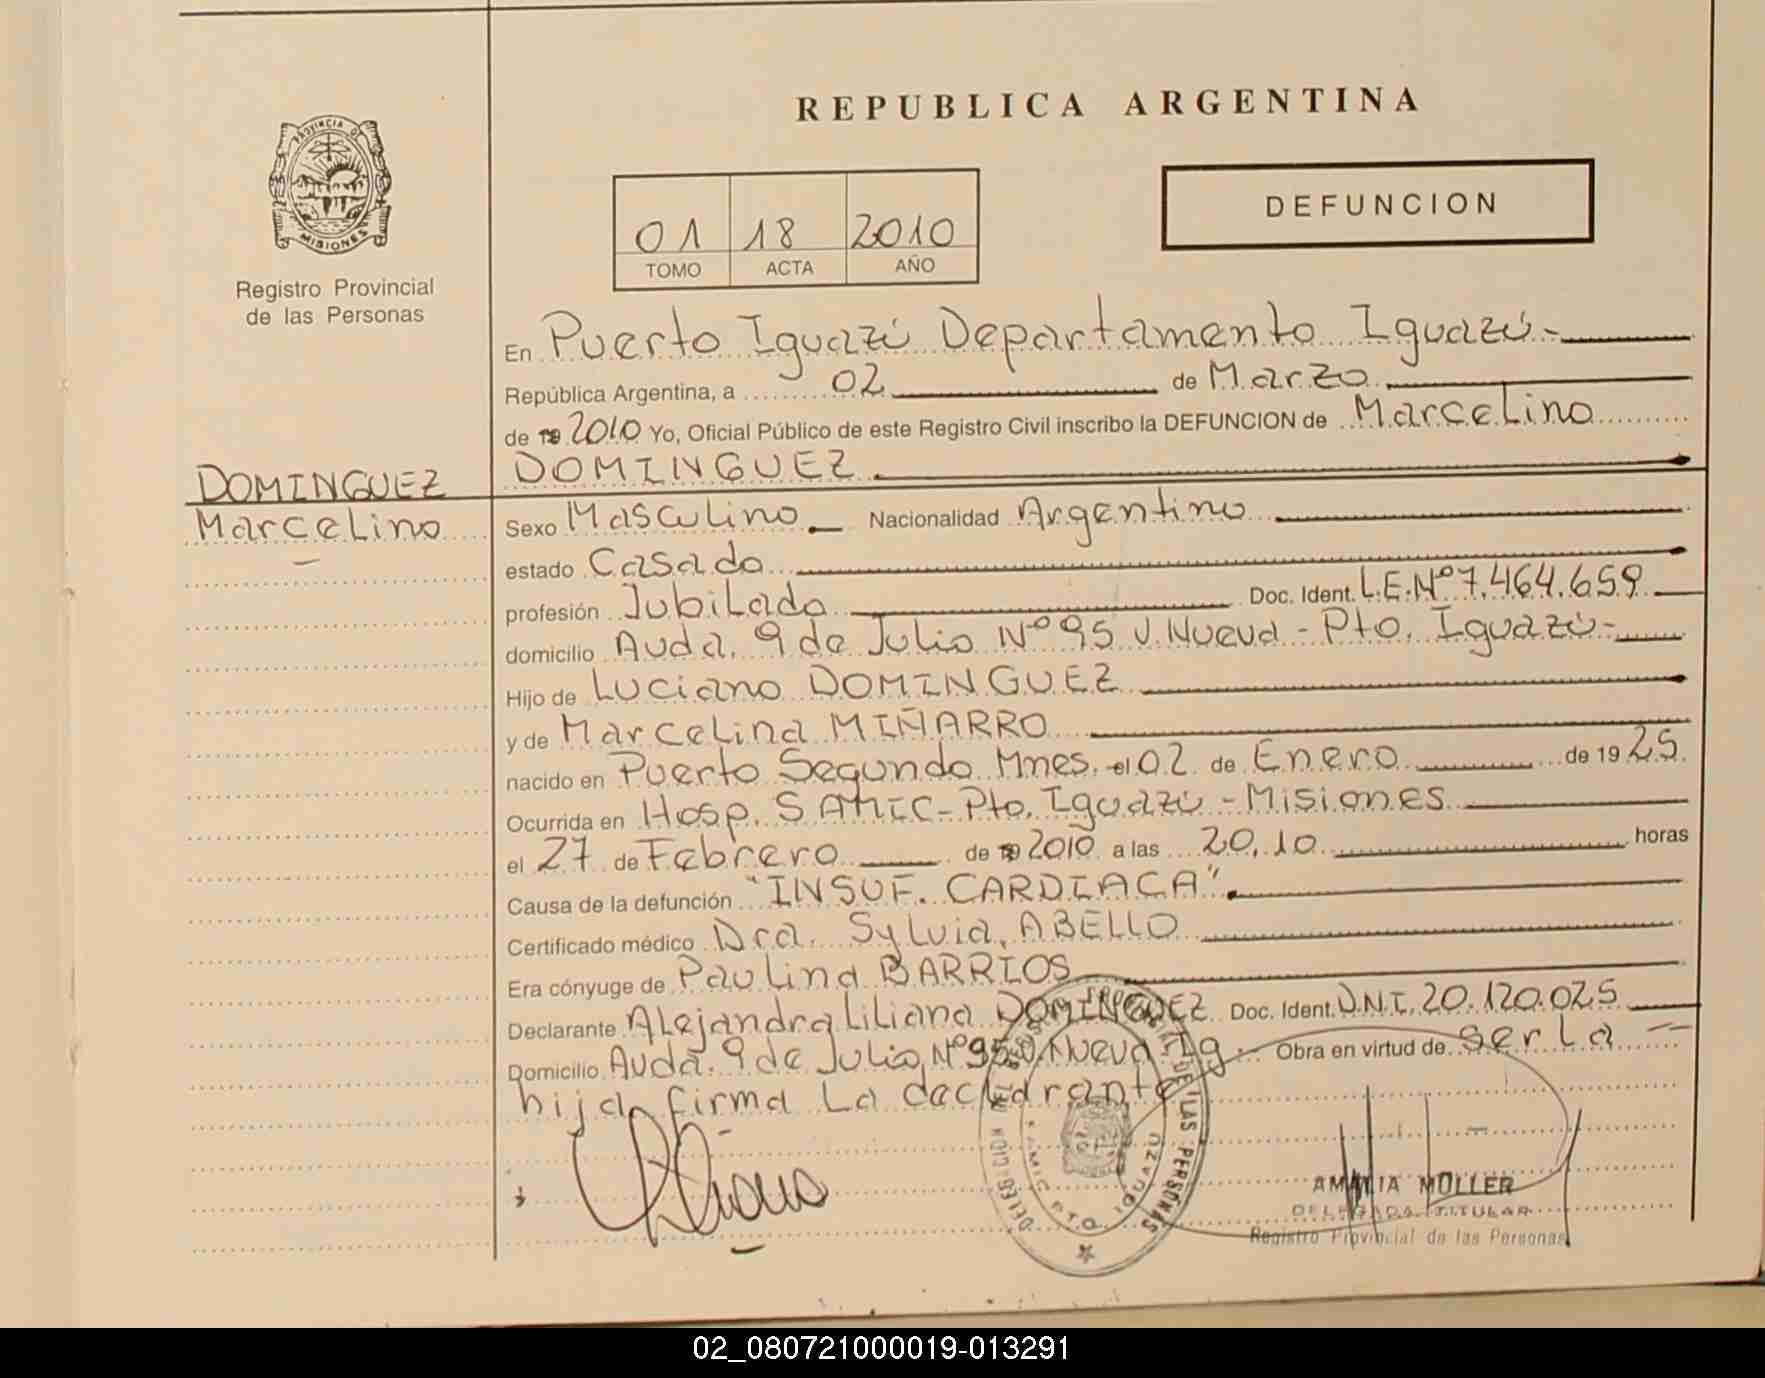 REPUBLICA ARGENTINA
PROVINCIA DE
MISIONES
Registro Provincial
de las Personas
DEFUNCION
01 18 2010
TOMO ACTA AÑO
En Puerto Iguazú Departamento Iguazú-
República Argentina, a 02 de Marzo
de 19 2010 Yo, Oficial Público de este Registro Civil inscribo la DEFUNCION de Marcelino
DOMINGUEZ
DOMINGUEZ
Marcelino
Sexo Masculino Nacionalidad Argentino
estado Casado
profesión Jubilado Doc. Ident. L.E.Nº7.464.659
domicilio Avda. 9 de Julio Nº95 V.Nueva-Pto. Iguazú-
Hijo de Luciano DOMINGUEZ
y de Marcelina MIÑARRO
nacido en Puerto Segundo Mnes. el 02 de Enero de 1925.
Ocurrida en Hosp. SAMIC-Pto. Iguazú-Misiones
el 27 de Febrero de 19 2010 a las 20,10 horas
Causa de la defunción "INSUF. CARDIACA".
Certificado médico Dra. Sylvia, ABELLO
Era cónyuge de Paulina BARRIOS
Declarante Alejandra Liliana DOMINGUEZ Doc. Ident. D.N.I. 20.120.025
Domicilio Avda. 9 de Julio Nº95 V.Nueva Ig. Obra en virtud de ser la
hija, firma la declarante
DE LAS PERSONAS
DELEGACION
SAMIC PTO. IGUAZU
AMALIA MÜLLER
DELEGADA TITULAR
Registro Provincial de las Personas
02_080721000019-013291